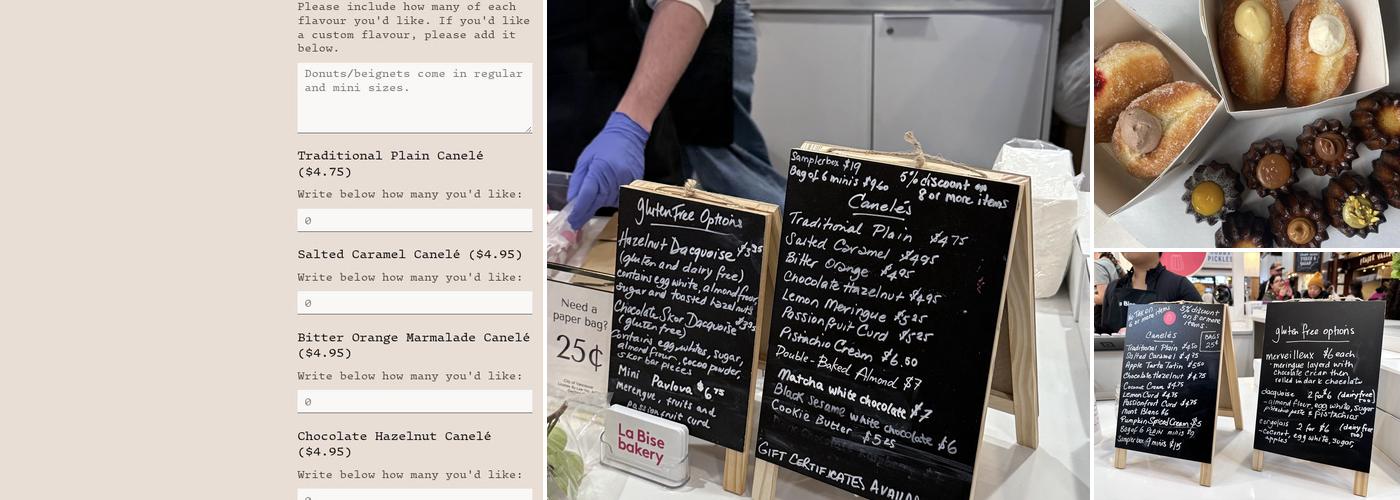 Please include how many of each
flavour you'd like. If you'd like
a custom flavour, please add it
below.
Donuts/beignets come in regular
and mini sizes.
Traditional Plain Canelé
($4.75)
Write below how many you'd like:
0
Salted Caramel Canelé ($4.95)
Write below how many you'd like:
0
Bitter Orange Marmalade Canelé
($4.95)
Write below how many you'd like:
0
Chocolate Hazelnut Canelé
($4.95)
Write below how many you'd like:
0
gluten Free Options
Hazelnut Dacquoise
(gluten and dairy free)
contains egg white, almond flour,
sugar and toasted hazelnuts
Chocolate Skor Dacquoise
(gluten free)
contains egg whites, sugar,
almond flour, cocoa powder,
skor bar pieces
Mini Pavlova $6.75
merengue, fruits and
passionfruit curd
Need a
paper bag?
25¢
City of Vancouver
La Bise
bakery
Samplerbox $19
Bag of 6 minis $9.60
5% discount on
8 or more items
Canelés
Traditional Plain $4.75
Salted Caramel $4.95
Bitter Orange $4.95
Chocolate Hazelnut $4.95
Lemon Meringue $5.25
Passionfruit Curd $5.25
Pistachio Cream $6.50
Double-Baked Almond $7
Matcha white chocolate $7
Black sesame white chocolate $6
Cookie Butter $5.25
GIFT CERTIFICATES
PICKLES
No Tax on
6 or more items
5% discount
on 8 or more
items!
BAGS
25¢
Canelés
Traditional Plain $4.50
Salted Caramel $4.75
Apple Tarte Tatin $5.50
Chocolate Hazelnut $4.75
Coconut Cream $4.75
Lemon Curd $4.75
Passionfruit Curd $4.75
Mont Blanc $6
Pumpkin Spiced Cream $5
Bag of 6 PLAIN minis
Sampler box 9 minis $15
gluten free options
merveilleux $6 each
meringue layered with
chocolate cream then
rolled in dark chocolate
dacquoise 2 for $6 (dairy free)
- almond flour, egg white, sugar
pistachio paste & pistachios
congolais 2 for $6 (dairy free
too)
- coconut, egg white, sugar,
apples